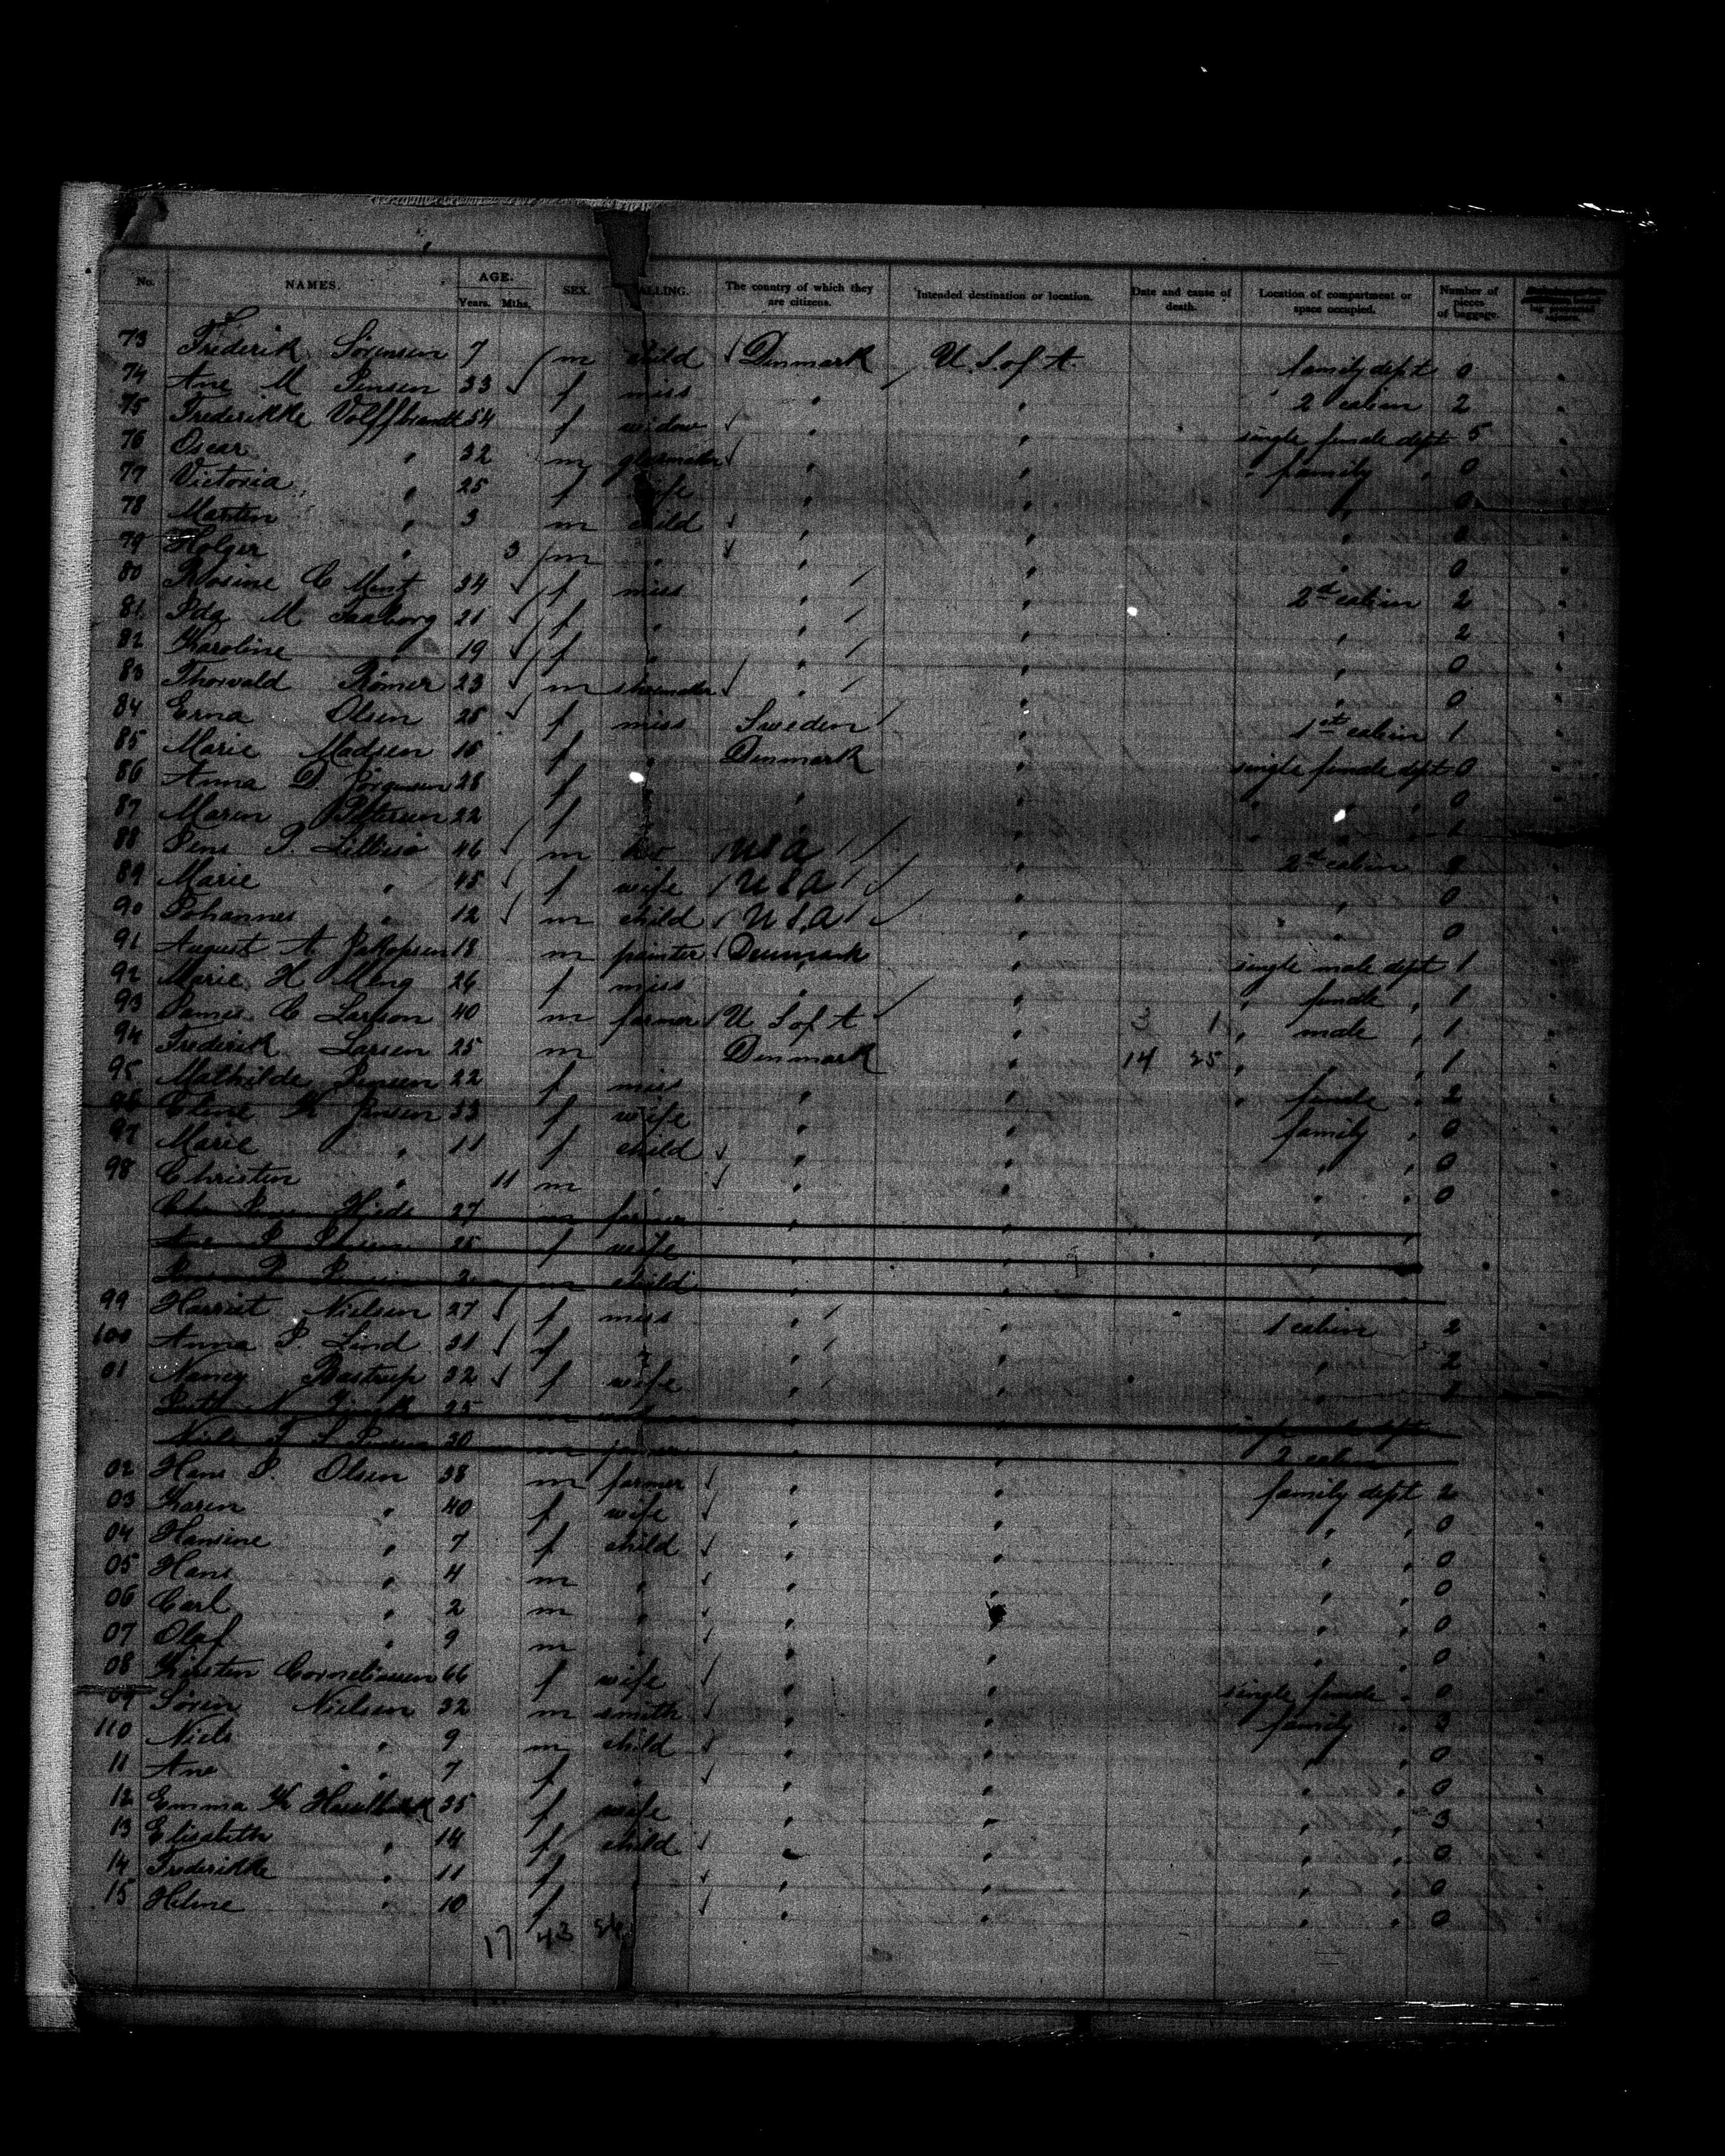 No. NAMES. AGE. Years. Mths. SEX. CALLING. The country of which they are citizens. Intended destination or location. Date and cause of death. Location of compartment or space occupied. Number of pieces of baggage.
73 Frederik Sörensen 7 m child Denmark U. S. of A. family dept 0
74 Ane M Jensen 33 f miss " " 2 cabin 2
75 Frederikke Volffbrandt 54 f widow " " single female dept 5
76 Oscar " 32 m " " family " 0
77 Victoria " 25 f wife " " " 0
78 Martin " 3 m child " " " 0
79 Holger " 3 m " " " " 0
80 Rosine C 34 f miss " " 2d cabin 2
81 Ida M Faaborg 21 f " " " " 2
82 Karoline " 19 f " " " " 0
83 Thorvald Römer 23 m shoemaker " " " 0
84 Erna Olsen 25 f miss Sweden " 1st cabin 1
85 Marie Madsen 16 f " Denmark " single female dept 0
86 Anna D. Jörgensen 28 f " " " " " 0
87 Maren Petersen 22 f " " " "
88 Jens P. 46 m U S A " 2d cabin
89 Marie " 45 f wife U S A " " 0
90 Johannes " 12 m child U S. A " " 0
91 August A Jakopsen 18 m painter Denmark " single male dept 1
92 Marie H 26 f miss " " " female " 1
93 James C Larson 40 m farmer U S of A " 3 1 " male " 1
94 Frederik Larsen 25 m Denmark " 14 25 " " 1
95 Mathilde Jensen 22 f miss " " " female " 2
96 Eline K Jensen 33 f wife " " family " 0
97 Marie " 11 f child " " " " 0
98 Christen " 11 m " " " " " 0
27 m farmer " " " "
25 f wife " " "
2 m child " " "
99 Harriet Nielsen 27 f miss " " 1 cabin 2
100 Anna P. Lind 31 f " " " " 2
01 Nancy Bastrup 32 f wife " " "
25 m " "
Niels 30 m " " 2 cabin
02 Hans P. Olsen 38 m farmer " " family dept 2
03 Karen " 40 f wife " " " " 0
04 Hansine " 7 f child " " " " 0
05 Hans " 4 m " " " " " 0
06 Carl " 2 m " " " " " 0
07 Olaf " 9 m " " " " " 0
08 Kirsten Corneliussen 66 f wife " " single female " 0
09 Sören Nielsen 32 m smith " " family " 3
110 Niels " 9 m child " " " " 0
11 Ane " 7 f " " " " " 0
12 Emma K 35 f wife " " " " 3
13 Elisabeth " 14 f child " " " " 0
14 Frederikke " 11 f " " " " 0
15 Heline " 10 f " " " " 0
17 43